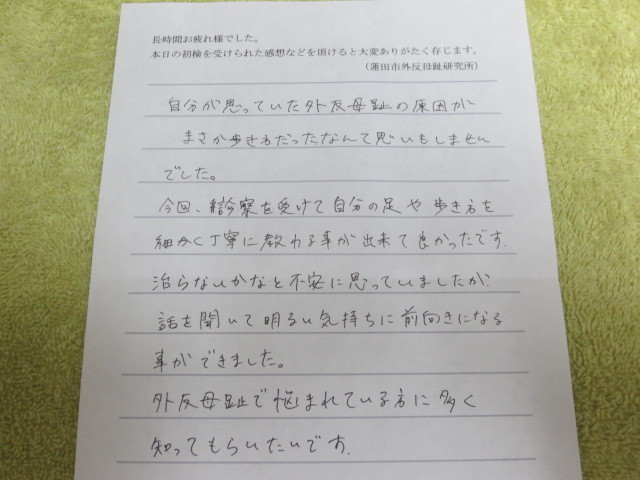 長時間お疲れ様でした。
本日の初検を受けられた感想などを頂けると大変ありがたく存じます。
（蓮田市外反母趾研究所）
自分が思っていた外反母趾の原因が
まさか歩き方だったなんて思いもしません
でした。
今回、診察を受けて自分の足や歩き方を
細かく丁寧に教わる事が出来て良かったです.
治らないかなと不安に思っていましたが、
話を聞いて明るい気持ちに前向きになる
事ができました。
外反母趾で悩まれている方に多く
知ってもらいたいです.